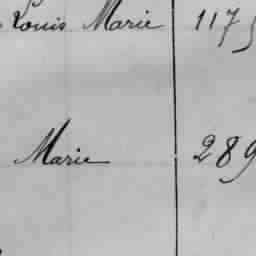 Louis Marie 117
Marie 289